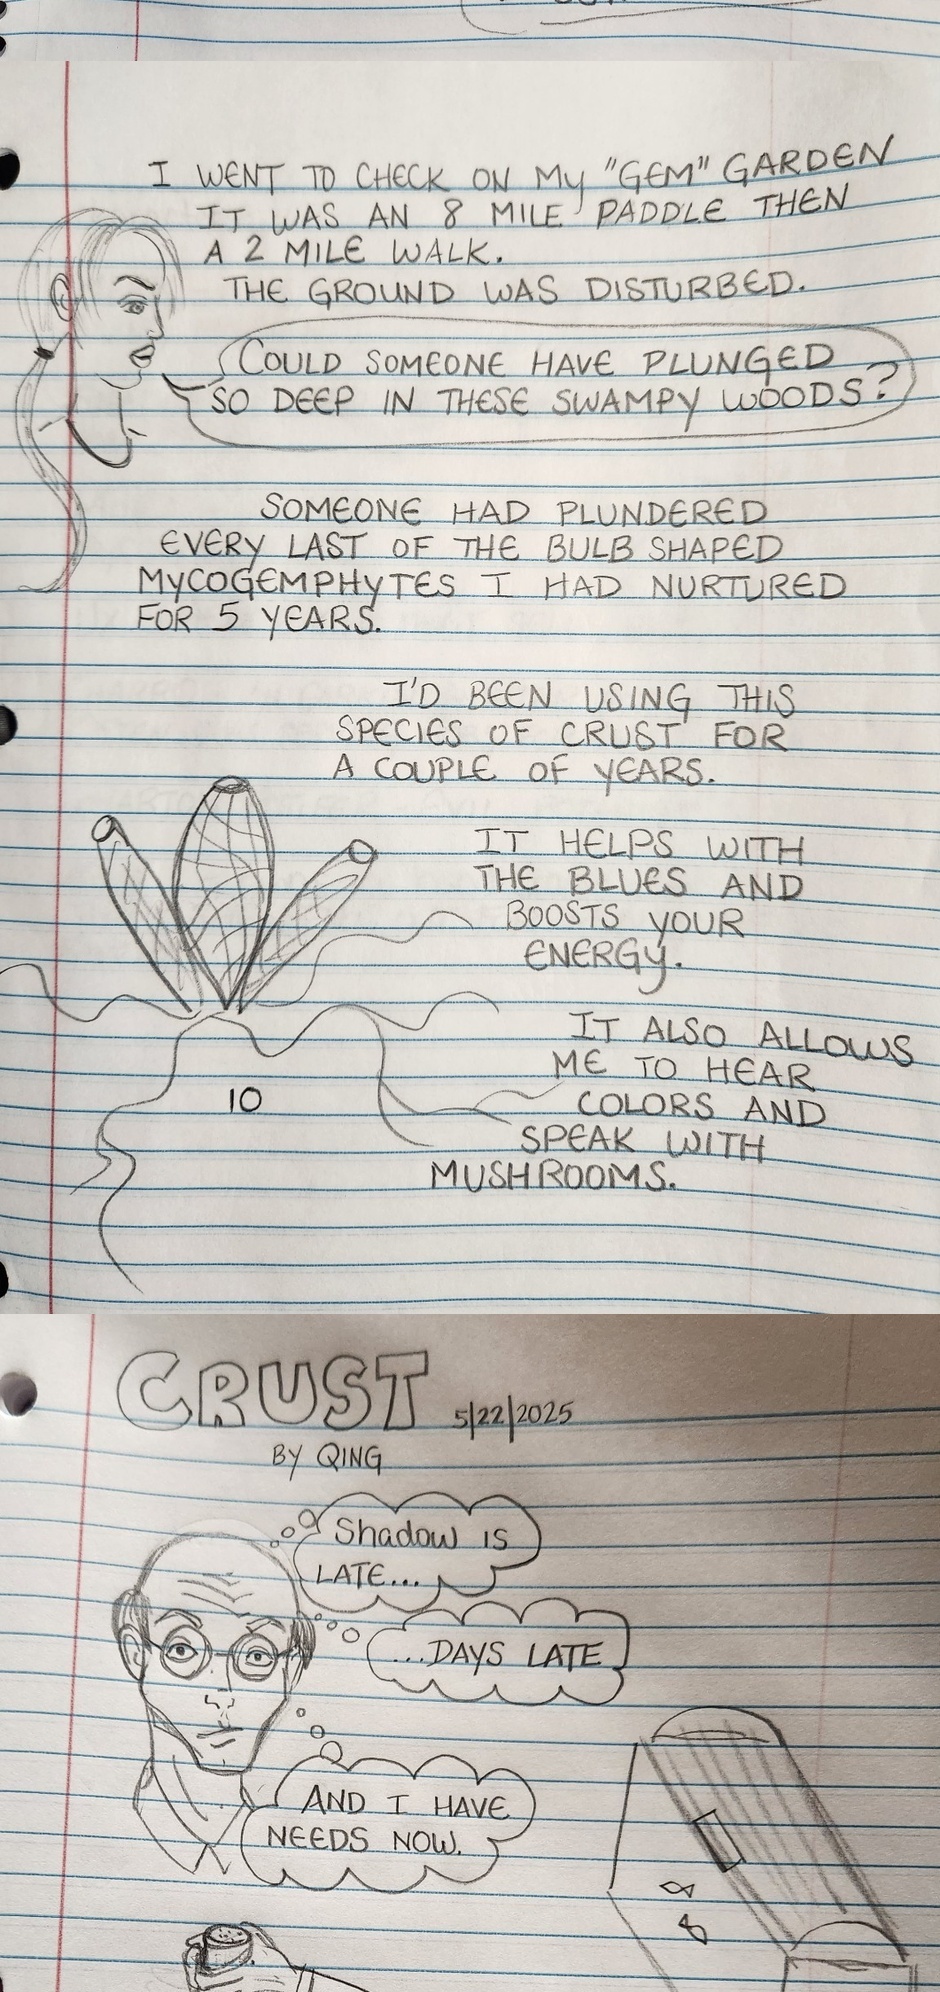 I WENT TO CHECK ON My "GEM" GARDEN
IT WAS AN 8 MILE PADDLE THEN
A 2 MILE WALK.
THE GROUND WAS DISTURBED.
COULD SOMEONE HAVE PLUNGED
SO DEEP IN THESE SWAMPY WOODS?
SOMEONE HAD PLUNDERED
EVERY LAST OF THE BULB SHAPED
MYCOGEMPHYTES I HAD NURTURED
FOR 5 YEARS.
I'D BEEN USING THIS
SPECIES OF CRUST FOR
A COUPLE OF YEARS.
IT HELPS WITH
THE BLUES AND
BOOSTS YOUR
ENERGY.
IT ALSO ALLOWS
ME TO HEAR
COLORS AND
SPEAK WITH
MUSHROOMS.
10
CRUST 5/22/2025
BY QING
Shadow IS
LATE...
...DAYS LATE
AND I HAVE
NEEDS NOW.